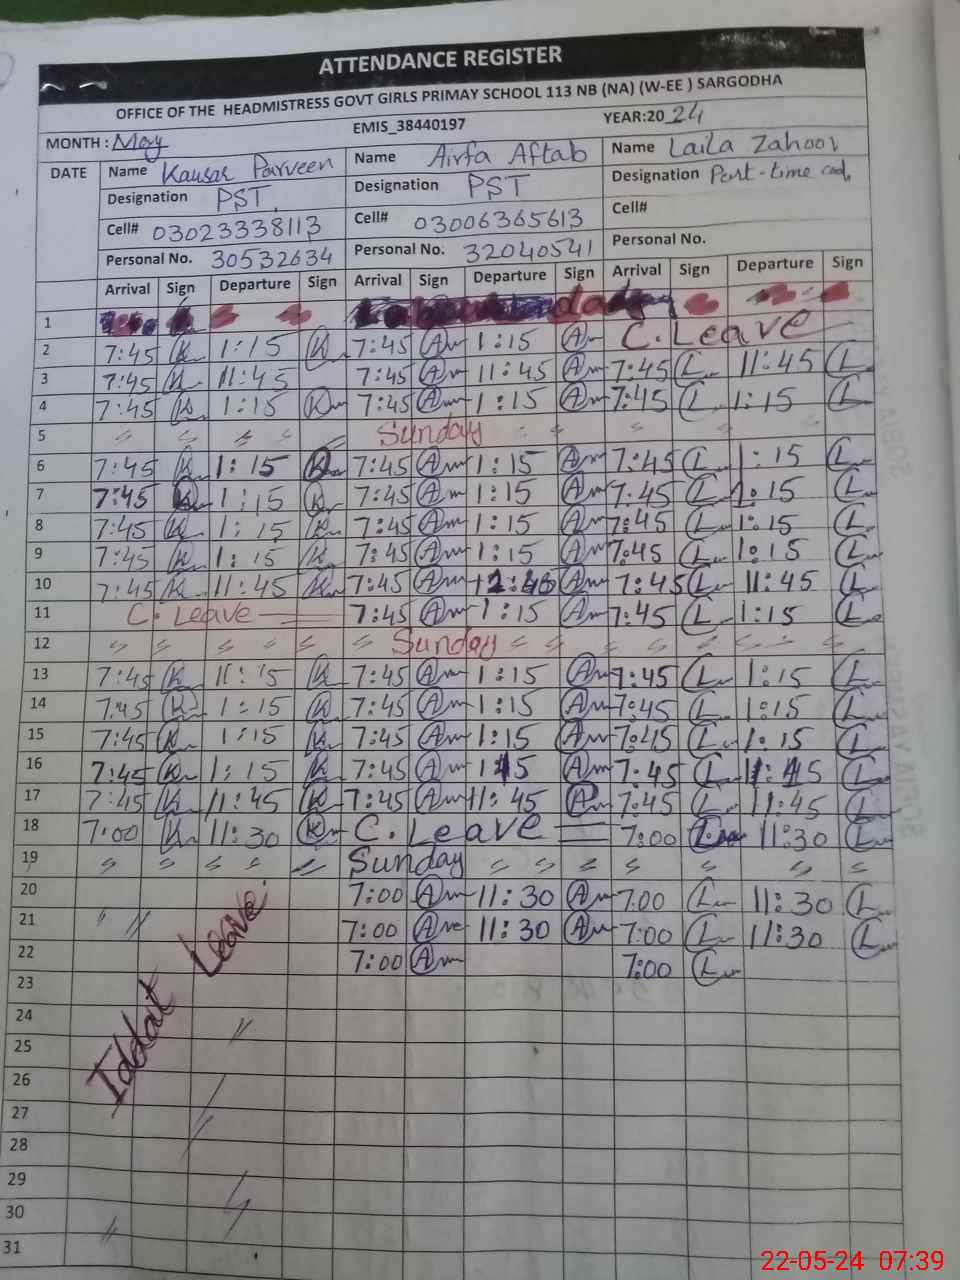 ATTENDANCE REGISTER
OFFICE OF THE HEADMISTRESS GOVT GIRLS PRIMAY SCHOOL 113 NB (NA) (W-EE ) SARGODHA
MONTH : May EMIS_38440197 YEAR:2024
DATE Name Kausar Parveen Name Airfa Aftab Name Laila Zahoor
Designation PST Designation PST Designation Part-time
Cell# 03023338113 Cell# 03006365613 Cell#
Personal No. 30532634 Personal No. 32040541 Personal No.
Arrival Sign Departure Sign Arrival Sign Departure Sign Arrival Sign Departure Sign
1
2 7:45 K 1:15 K 7:45 Am 1:15 Am C. Leave
3 7:45 K 11:45 7:45 Am 11:45 Am 7:45 L 11:45 L
4 7:45 K 1:15 K 7:45 Am 1:15 Am 7:45 L 1:15 L
5 Sunday
6 7:45 K 1:15 K 7:45 Am 1:15 Am 7:45 L 1:15 L
7 7:45 K 1:15 K 7:45 Am 1:15 Am 7:45 L 1:15 L
8 7:45 K 1:15 K 7:45 Am 1:15 Am 7:45 L 1:15 L
9 7:45 K 1:15 K 7:45 Am 1:15 Am 7:45 L 1:15 L
10 7:45 K 11:45 K 7:45 Am Am 7:45 L 11:45 L
11 C. Leave 7:45 Am 1:15 Am 7:45 L 1:15 L
12 Sunday
13 7:45 K K 7:45 Am 1:15 Am 7:45 L 1:15 L
14 7:45 K 1:15 K 7:45 Am 1:15 Am 7:45 L 1:15 L
15 7:45 K 1:15 K 7:45 Am 1:15 Am 7:45 L 1:15 L
16 7:45 K 1:15 K 7:45 Am Am 7:45 L L
17 7:45 K 11:45 K 7:45 Am 11:45 Am 7:45 L 11:45 L
18 7:00 K 11:30 K C. Leave 7:00 L 11:30 L
19 Sunday
20 7:00 Am 11:30 Am 7:00 L 11:30 L
21 7:00 Am 11:30 Am 7:00 L 11:30 L
22 7:00 Am 7:00 L
23
24
25
26
27
28
29
30
31
Iddat Leave
22-05-24 07:39